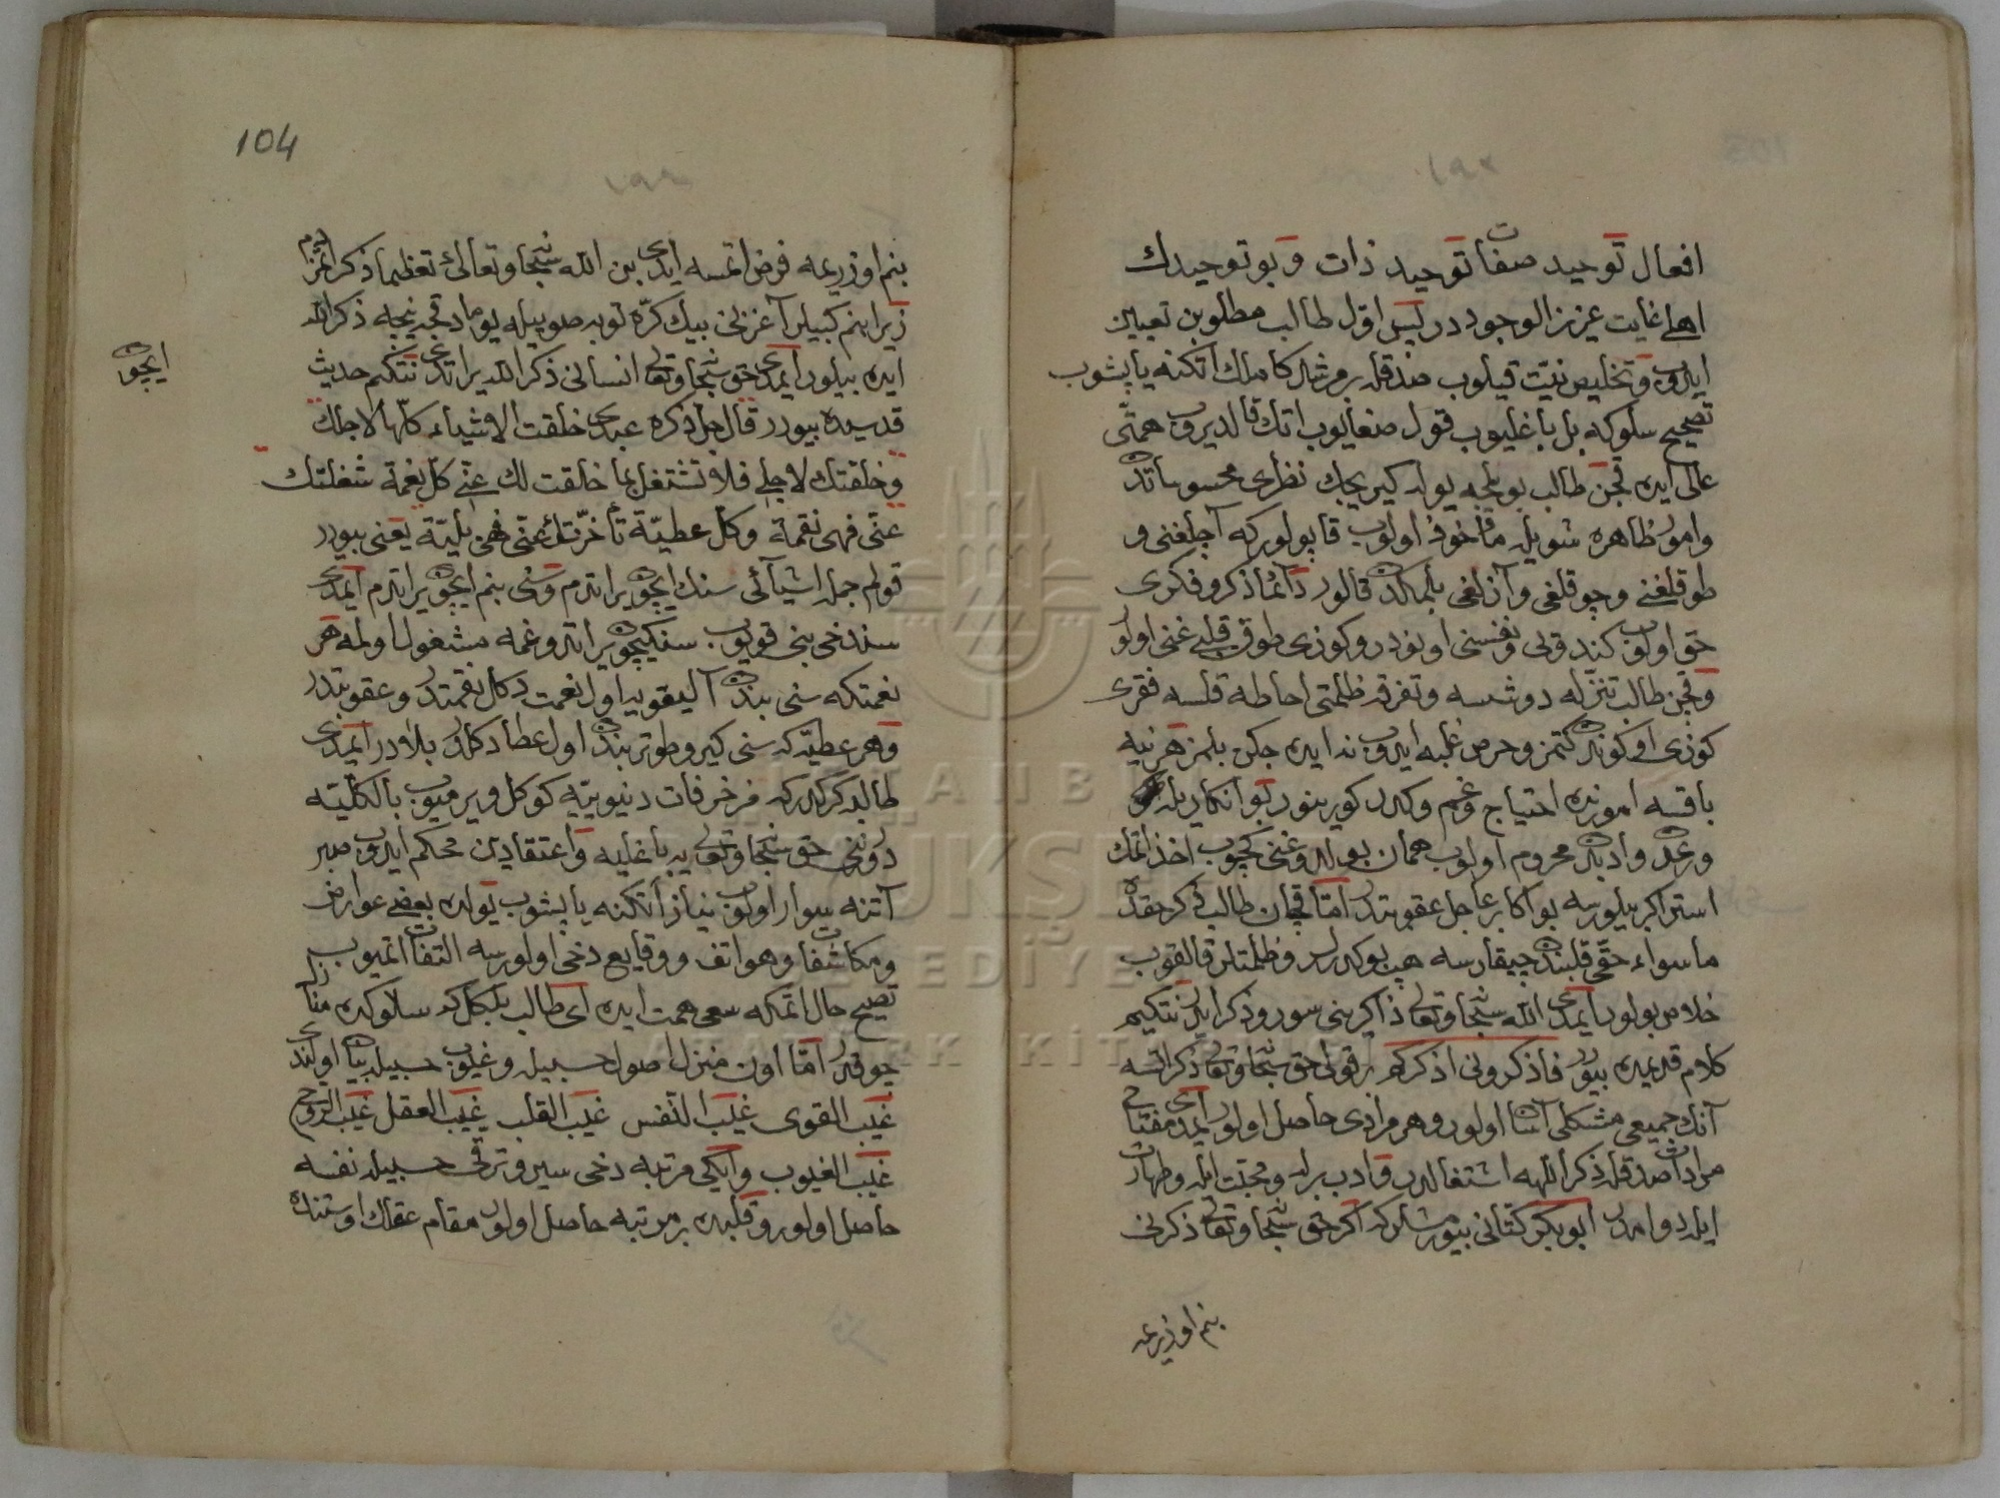 افعال توحید صفات توحید ذات و بو توحیدك
اهلی غایت عزیز الوجود در پس اول طالب مطلوبن تعیین
ایدوب و تخلیص نیت قیلوب صدقله بر مرشد كاملك اتكنه یاپشوب
تصحیح سلوكه بل باغلیوب قول صغایوب اتك قالدیروب همتی
عالی ایده قچن طالب بویلجه یوله كیریجك نظری محسوساتدن
و امور ظاهره شویله مأخوذ اولوب قاپولور كه آچلغنی و
طوقلغنی و چوقلغی و آزلغی بلمكدن قالور دائما ذكر و فكری
حق اولوب كندولی و نفسنی اونودر و كوزی طوق قلبی غنی اولور
و قچن طالب تنزله دوشسه و تفرقه ظلمتی احاطه قلسه فقری
كوزی اوكوندن كتمز و حرص غلبه ایدوب ندایده جكن بلمز هر نیه
باقسه اموزنده احتیاج و غم و كدر كورینور بو انكاریله
وردن و ادبدن محروم اولوب همان بولدوغنی كچوب اخذ اتمك
استر اكر بیلورسه بو اكا بر عاجل عقوبتدر اما قچان طالب فكر حقدن
ماسواء حقی قلبندن چیقارسه هپ بو كدرلر و ظلمتلر قالقوب
خلاص بولور ایمدی الله سبحانه و تعالی ذاكرینی سور و ذكر ایدر نتكیم
كلام قدیمده بیورر فاذكرونی اذكركم بر قولی حق سبحانه و تعالی ذكر اتسه
آنك جمیعی مشكلی آسان اولور و هر مرادی حاصل اولور ایمدی مفتاح
مرادات صدقله ذكر اللهه اشتغالدر و ادب برله و محبت ایله و طهارت
ایله دوامدر ابو بكر كتانی بیورمشلر كه اكر حق سبحانه و تعالی ذكرنی
بنم اوزریمه
104
بنم اوزریمه فرض اتمسه ایدی بن الله سبحانه و تعالی تعظیما ذكر اتمزدم
زیرا بنم كبیلر آغزنی بیك كره توبه صوییله یوماد قجه نیجه ذكر الله
ایده بیلور ایمدی حق سبحانه و تعالی انسانی ذكر الله یراتدی نتكیم حدیث
ایچون
قدسیده بیورر قال جل ذكره عبدی خلقت الاشیاء كلها لاجلك
و خلقتك لاجلی فلا تشتغل بما خلقت لك عنی كل نعمة شغلتك
عنی فهی نقمة و كل عطیة تأخرتك عنی فهی بلیة یعنی بیورر
قولم جمله اشیائی سنك ایچون یراتدم و سنی بنم ایچون یراتدم ایمدی
سندخی بنی قویوب سنكیچون یراتدوغمه مشغول اولمه هر
نعمتكه سنی بندن آلیقویه اول نعمت دكل نقمتدر و عقوبتدر
و هر عطیه كه سنی كیرو طوتر بندن اول عطا دكلدر بلادر ایمدی
طالبه كركدر كه مزخرفات دنیویه كوكل ویرمیوب بالكلیه
درونی حق سبحانه و تعالی یه باغلیه و اعتقادین محكم ایدوب صبر
آتنه سوار اولوب نیاز اتكنه یاپشوب یولده بعضی عوارض
و مكاشفات و هواتف و وقایع دخی اولورسه التفات اتمیوب
تصحیح حال اتمكه سعی همت ایده ای طالب بلكل كه سلوكده منازل
چوقدر اما اون منزل اصول حسبیله و غیوب حسبیله بیان اولندی
غیب القوی غیب النفس غیب القلب غیب العقل غیب الروح
غیب الغیوب و ایكی مرتبه دخی سیر و ترقی حسبیله نفسه
حاصل اولور و قلبده بر مرتبه حاصل اولور مقام عقلك اوستنده